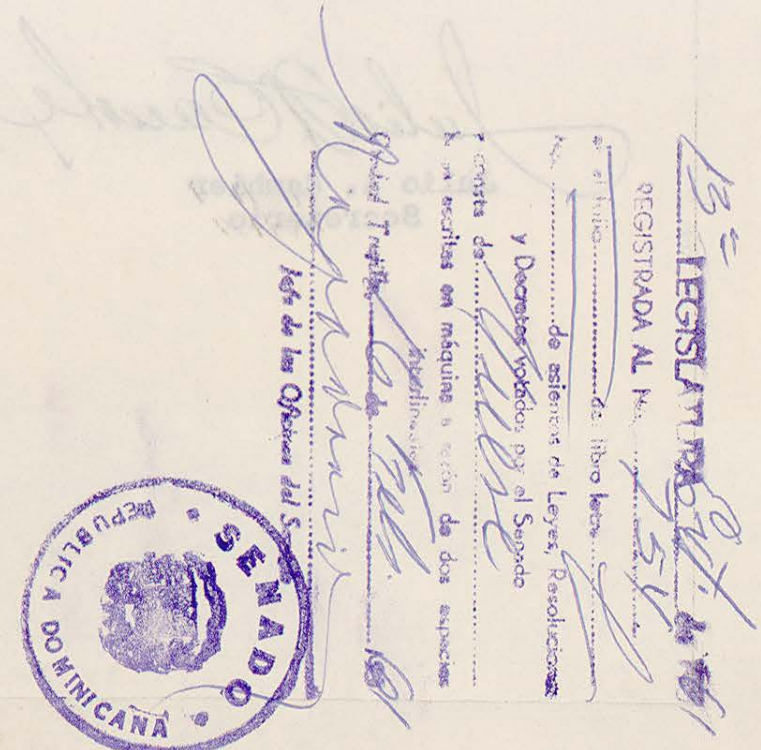 13ª LEGISLATURA Ext. de 1961
REGISTRADA AL No. 954
al folio de libro letra
No. de asientos de Leyes, Resoluciones
y Decretos votados por el Senado
consta de nueve
escritas en máquina a razón de dos espacios
interlineales
Ciudad Trujillo de Feb. 1961
Jefe de las Oficinas del S
SENADO
REPUBLICA DOMINICANA
Julio A.
Secretario